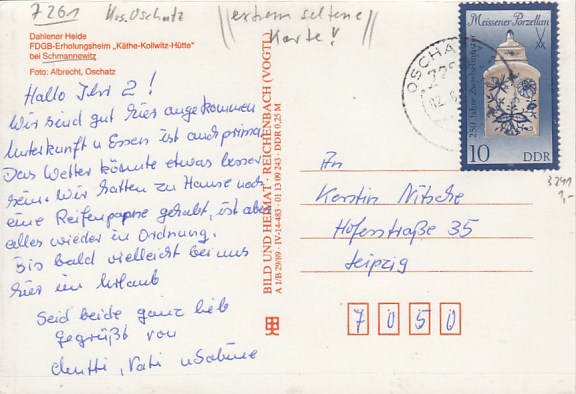 7261 Krs. Oschatz
//extrem seltene
Karte! //
Dahlener Heide
FDGB-Erholungsheim „Käthe-Kollwitz-Hütte"
bei Schmannewitz
Foto: Albrecht, Oschatz
Hallo Ihr 2!
Wir sind gut hier angekommen
Unterkunft u Essen ist auch prima.
Das Wetter könnte etwas besser
sein. Wir hatten zu Hause noch
eine Reifenpanne gehabt, ist aber
alles wieder in Ordnung.
Bis bald vielleicht bei uns
hier im Urlaub
Seid beide ganz lieb
gegrüßt von
Mutti, Vati u Sabine
BILD UND HEIMAT REICHENBACH (VOGTL)
A 1/B 29/89 IV-14-483 01 13 09 243 DDR 0,25 M
OSCHATZ
Meissener Porzellan
250 Jahre Zwiebelmuster
10 DDR
3241
1,-
An
Kerstin Nitsche
Hoferstraße 35
Leipzig
7050